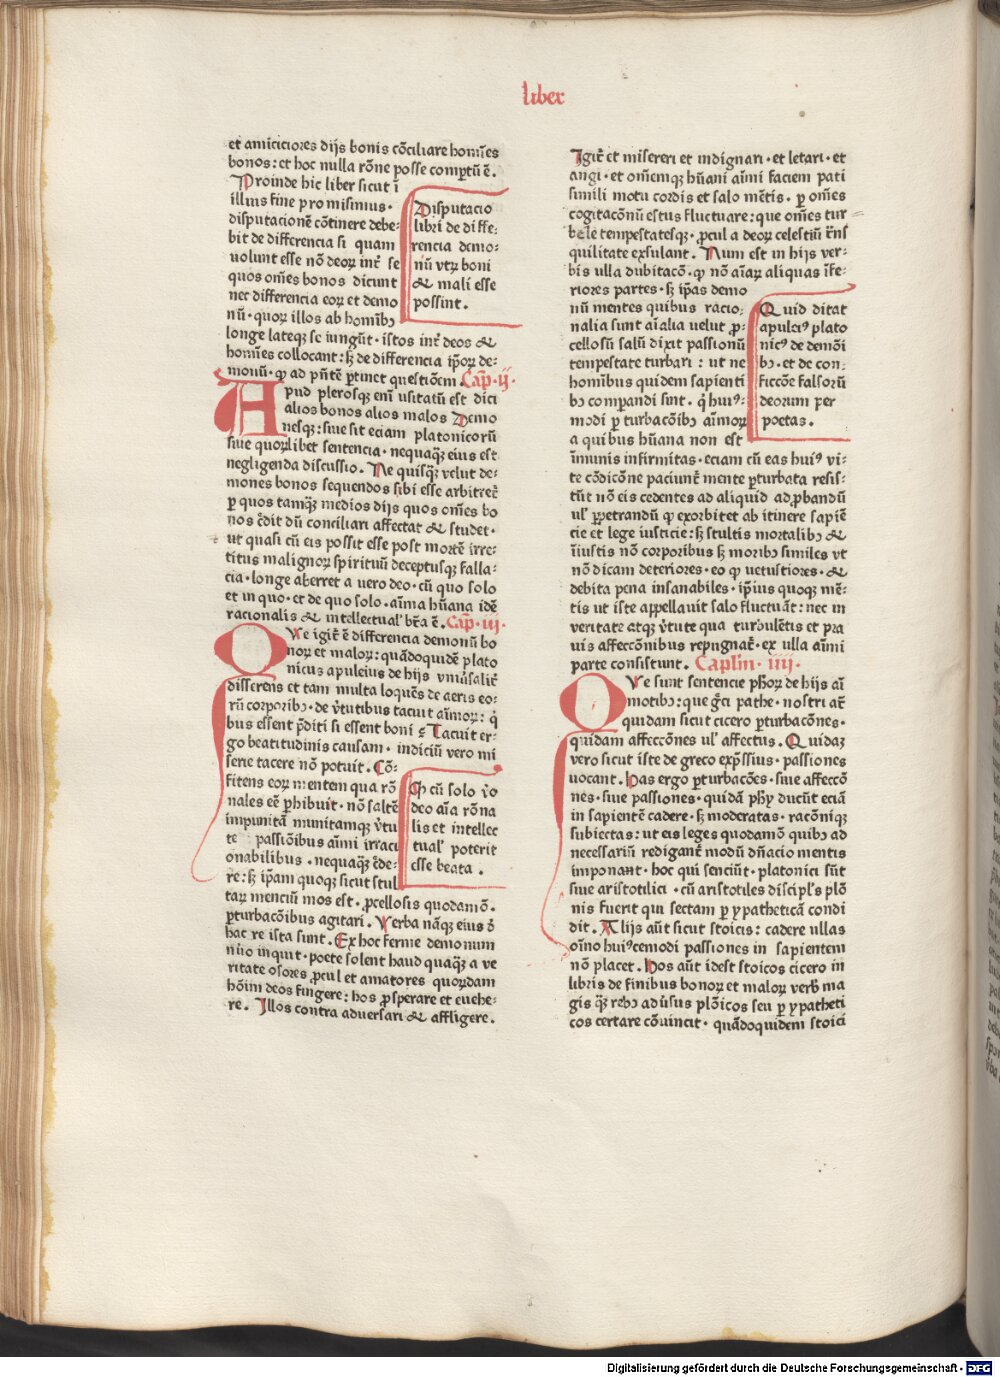 liber
et amiciciores dijs bonis cōciliare homīes
bonos: et hoc nulla rōne posse compertū ē.
Proinde hic liber sicut ī
illius fine promisimus·
disputacionē cōtinere debe-
bit de differencia si quam
volunt esse nō deoꝝ intˢ se
quos om̄es bonos dicunt
nec differencia eoꝝ et demo
nū· quoꝝ illos ab homībꝫ
Disputacio
libri de diffe-
rencia demo-
nū vtꝝ boni
& mali esse
possint.
longe lateqꝫ se iungūt· istos intˢ deos &
homīes collocant: sꝫ de differencia ipoꝝ de-
monū· ꝙ ad pn̄tē ꝑtinet questiōem. Cap̄·ij·
Apud plerosqꝫ eni usitatū est dici
alios bonos alios malos Demo
nesqꝫ: siue sit eciam platonicorū
siue quoꝝlibet sentencia· nequaqꝫ eius est
negligenda discussio. Ne quisqꝫ velut de-
mones bonos sequendos sibi esse arbitretˢ
ꝑ quos tamqꝫ medios dijs quos om̄es bo
nos c̄dit dū conciliari affectat & studet·
ut quasi cū eis possit esse post mortē irre-
titus malignoꝝ spirituū deceptusqꝫ falla-
cia· longe aberret a uero deo· cū quo solo
et in quo· et de quo solo· aīma hūana idē
racionalis & intellectual' bt̄a ē. Cap̄·iij·
Que igitˢ ē differencia demonū bo
noꝝ et maloꝝ: quādoquidē plato
nicus apuleius de hijs vniūsalitˢ
disserens et tam multa loquēs de aeris eo-
rū corporibꝫ· de v̄tutibus tacuit aīmoꝝ: q̇
bus essent p̄diti si essent boni: Tacuit er-
go beatitudinis causam· indiciū vero mi
serie tacere nō potuit. Cō-
fitens eoꝝ mentem qua rō
nales eē ꝑhibuit· nō saltē
impunitā munitamqꝫ v̄tu
te passiōibus aīmi irraci
onabilibus· nequaqꝫ c̄de-
re: sꝫ ipam quoqꝫ sicut stul
Qn̄ cū solo v̄o
deo aīa rōna
lis et intellec
tual' poterit
esse beata.
taꝝ menciū mos est· ꝓcellosis quodamō.
ꝑturbacōibus agitari. Verba nāqꝫ eius d̄
hac re ista sunt. Ex hoc ferme demonum
nūo inquit· poete solent haud quaqꝫ a ve
ritate osores ꝓcul et amatores quoꝝdam
hōim deos fingere: hos ꝓsperare et euehe-
re. Illos contra aduersari & affligere.
Igitˢ et misereri et indignari· et letari· et
angi· et om̄emqꝫ hūani aīmi faciem pati
simili motu cordis et salo mētis· ꝑ om̄es
cogitacōnū estus fluctuare: que om̄es tur
bele tempestatesqꝫ· ꝓcul a deoꝝ celestiū t̄ns
quilitate exsulant. Num est in hijs ver-
bis ulla dubitacō· ꝙ nō aīaꝝ aliquas īfe-
riores partes· sꝫ ip̄as demo
nū mentes quibus racio-
nalia sunt aīalia velut ꝓ-
cellosū salū dixit passionū
tempestate turbari: ut ne
homībus quidem sapienti
bꝫ comparandi sint· q̇ huiꝰ-
modi ꝑturbacōibꝫ aīmoꝝ
a quibus hūana non est
Quid dicat
apuleiꝰ plato
nicꝰ de demōi
bꝫ· et de con-
fictiōe falsorū
deorum per
poetas.
īmunis infirmitas· eciam cū eas huiꝰ vi-
te cōdicōne paciuntˢ mente ꝑturbata resis-
tūt nō eis cedentes ad aliquid adꝓbandū
ul' ꝑpetrandū ꝙ exorbitet ab itinere sapiē
cie et lege iusticie: sꝫ stultis mortalibꝫ &
iīustis nō corporibus sꝫ moribꝫ similes vt
nō dicam deteriores· eo ꝙ vetustiores· &
debita pena insanabiles· ipius quoqꝫ mē-
tis ut iste appellauit salo fluctuāt: nec in
veritate atqꝫ v̄tute qua turbulētis et pra
uis affectōnibus repugnatˢ· ex ulla aīmi
parte consistunt. Caplm̄· iiij·
Que sunt sentencie ph̄oꝝ de hijs aī
motibꝫ: que ḡci pathe· nostri aūt
quidam sicut cicero ꝑturbacōnes·
quidam affectōnes ul' affectus. Quidaꝫ
vero sicut iste de greco exp̄ssius· passiones
uocant. Has ergo ꝑturbacōes· siue affectō
nes· siue passiones· quidā ph̄y ducūt eciā
in sapientē cadere· sꝫ moderatas· racōniqꝫ
subiectas: ut eis leges quodamō quibꝫ ad
necessariū redigantˢ modū dn̄acio mentis
imponant· hoc qui senciūt· platonici sūt
siue aristotilici· cū aristotiles discipl's plō
nis fuerit qui sectam ꝑypatheticā condi
dit. Alijs aūt sicut stoicis: cadere ullas
oīno huiꝰcemodi passiones in sapientem
nō placet. Hos aūt idest stoicos cicero in
libris de finibus bonoꝝ et maloꝝ verb̄ ma
gis qꝫ rebꝫ aduersus plōicos seu ꝑypatheti
cos certare cōuincit· quādoquidem stoici
Digitalisierung gefördert durch die Deutsche Forschungsgemeinschaft - DFG